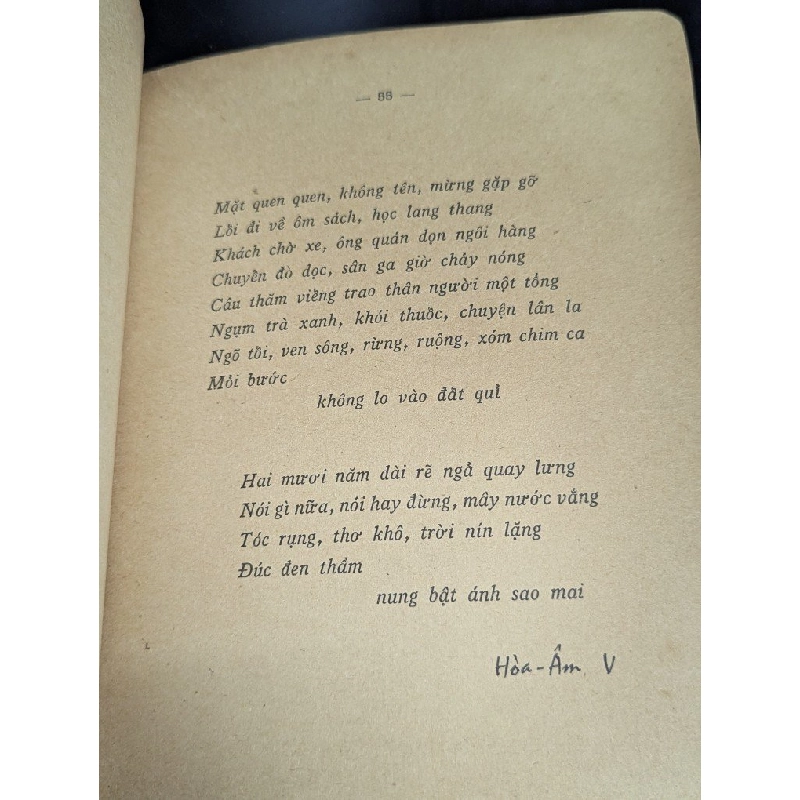 — 88 —
Mặt quen quen, không tên, mừng gặp gỡ
Lối đi về ôm sách, học lang thang
Khách chờ xe, ông quán dọn ngôi hàng
Chuyến đò dọc, sân ga giờ chảy nóng
Câu thăm viếng trao thân người một tổng
Ngụm trà xanh, khói thuốc, chuyện lân la
Ngõ tối, ven sông, rừng, ruộng, xóm chim ca
Mỏi bước
không lo vào đất quỉ
Hai mươi năm dài rẽ ngả quay lưng
Nói gì nữa, nói hay đừng, mây nước vẳng
Tóc rụng, thơ khô, trời nín lặng
Đúc đen thẳm
nung bật ánh sao mai
Hòa-Âm V